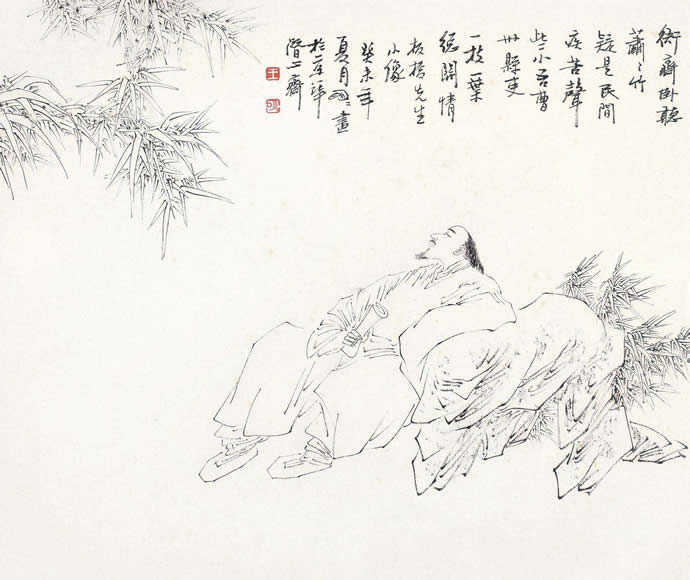 衙齋卧聽
蕭〻竹
疑是民間
疾苦聲
些小吾曹
州縣吏
一枝一葉
總關情
板橋先生
小像
癸未年
夏月畫
於京華
齋
王